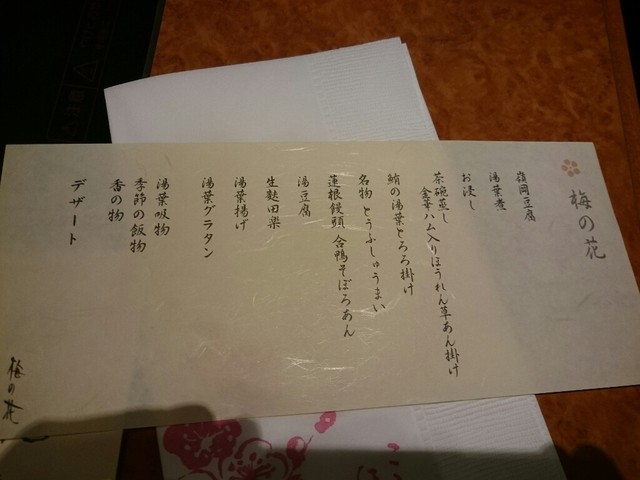 梅の花
嶺岡豆腐
湯葉煮
お浸し
茶碗蒸し
金華ハム入りほうれん草あん掛け
鮪の湯葉とろろ掛け
名物 とうふしゅうまい
蓮根饅頭 合鴨そぼろあん
湯豆腐
生麩田楽
湯葉揚げ
湯葉グラタン
湯葉吸物
季節の飯物
香の物
デザート
梅の花